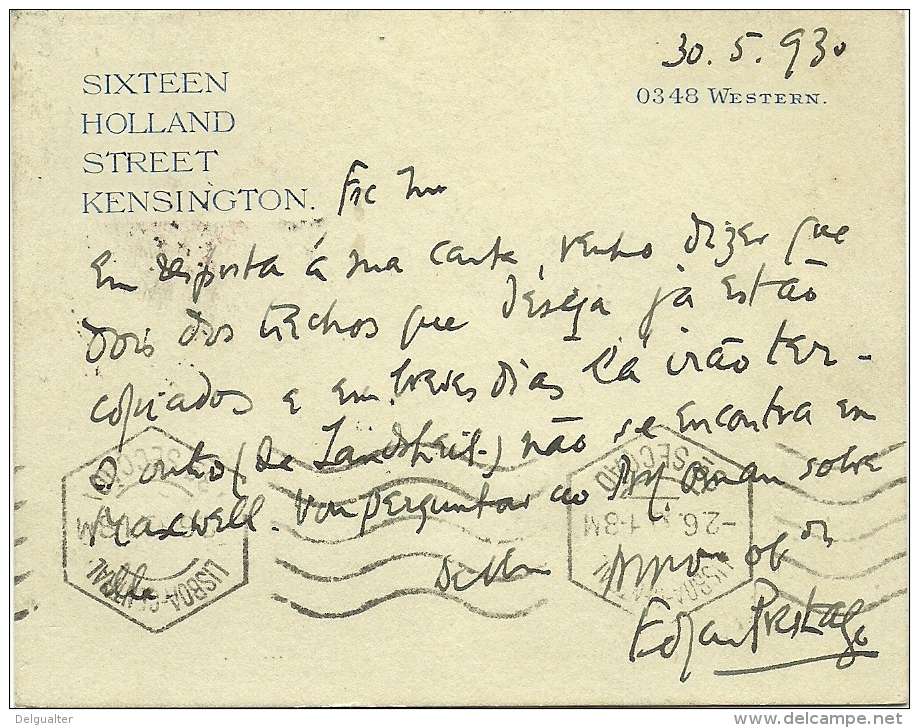 30.5.930
SIXTEEN
HOLLAND
STREET
KENSINGTON.
0348 WESTERN.
Em resposta á sua carta, venho dizer que
dois dos trechos que deseja já estão
copiados e em breves dias lá irão ter.
O outro (de Landsheit) não se encontra em
Maxwell. Vou perguntar ao Prof. sobre
elle
De V.
obdo
Edgar Prestage
LISBOA-CENTRAL
2ª SECÇÃO
LISBOA-CENTRAL
2ª SECÇÃO
-2.6.
1-8M
Delgualter
delcampe.net